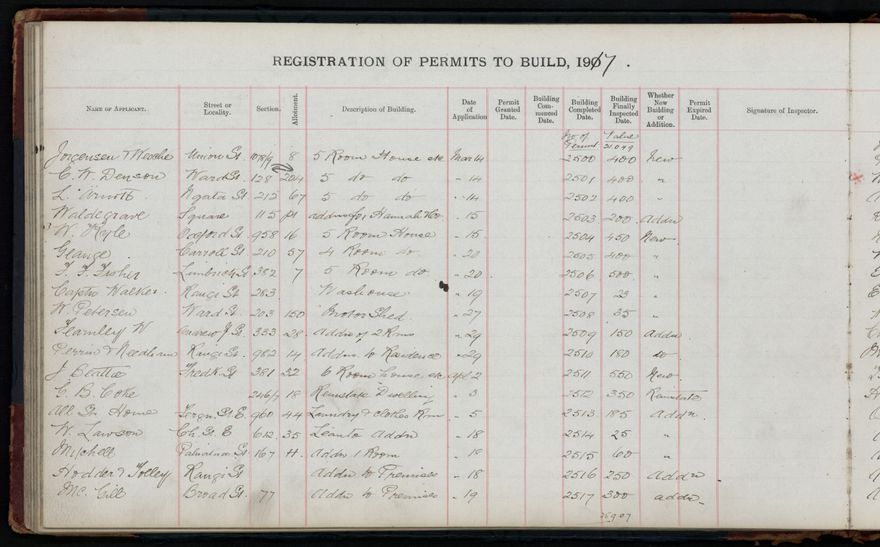 REGISTRATION OF PERMITS TO BUILD, 1917.
NAME OF APPLICANT. Street or Locality. Section. Allotment. Description of Building. Date of Application Permit Granted Date. Building Commenced Date. Building Completed Date. Building Finally Inspected Date. Whether New Building or Addition. Permit Expired Date. Signature of Inspector.
No. of Permit Value 31049
Jorgensen & Union St 1078/9 8 5 Room House etc Mar 14 2500 400 New
C. W. Denson Ward St. 128 204 5 do do " 14 2501 400 "
L. Arnott Ngata St 212 67 5 do do " 14 2502 400 "
Waldegrave Square 115 pt addns for Hannah & Co . 15 2503 200 Addn
W. Oxford St. 958 16 5 Room House " 15 2504 450 New
George Carroll St 210 57 4 Room do " 20 2505 400 "
T. F. Fisher Limbrick St 382 7 5 Room do " 20 2506 500 "
Captn Walker Rangi St 283 Washouse " 19 2507 23 "
W. Petersen Ward St. 203 150 Motor Shed " 27 2508 35 "
Fearnley W Andrew J. St. 333 28 Addn of 2 Rms " 29 2509 150 Addn
Perrin & Needham Rangi St. 982 14 Addns to Residence " 29 2510 180 do
J Beattie Fredk St 381 32 6 Room house etc Apl 2 2511 550 New
C. B. Coke 246/7 18 Reinstate Dwelling " 3 2512 350 Reinstate
All Sts Home Fergn. St E. 960 44 Laundry & clothes Rm " 5 2513 185 Addn
W. Lawson Ch. St. E 612 35 Leanto Addn " 18 2514 25 "
Mitchell 167 Addn 1 Room " 18 2515 60 "
Hodder & Tolley Rangi St Addn to Premises " 18 2516 250 Addn
Mc Gill Broad St. 77 Addn to Premises " 19 2517 300 addn